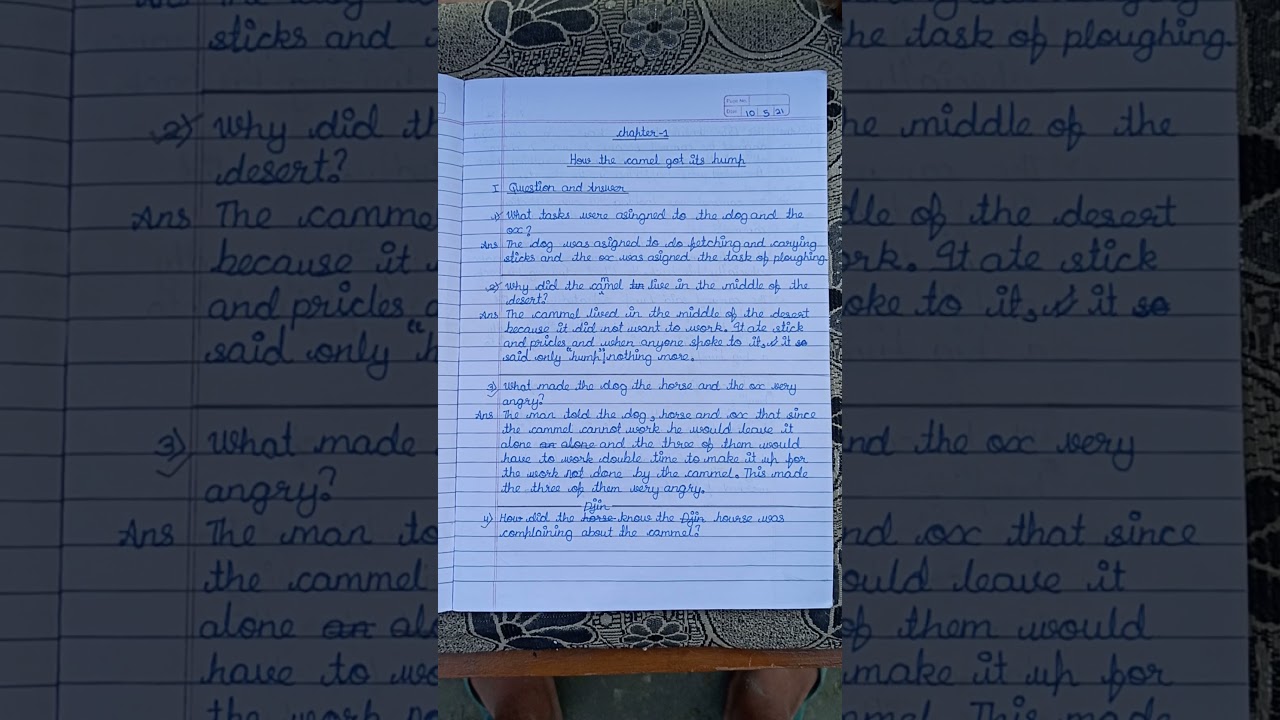 Page No.
Date 10 5 21
chapter-1
How the camel got its hump
I Question and Answer
1) What tasks were asingned to the dog and the
ox?
Ans The dog was asigned to do fetching and carying
sticks and the ox was asigned the task of ploughing.
2) Why did the cammel live in the middle of the
desert?
Ans The cammel lived in the middle of the desert
because it did not want to work. It ate stick
and pricles and when anyone spoke to it, it so
said only "hump" nothing more.
3) What made the dog the horse and the ox very
angry?
Ans The man told the dog, horse and ox that since
the cammel cannot work he would leave it
alone an alone and the three of them would
have to work double time to make it up for
the work not done by the cammel. This made
the three of them very angry.
4) How did the horse Djin know the Djin hourse was
complaining about the cammel?